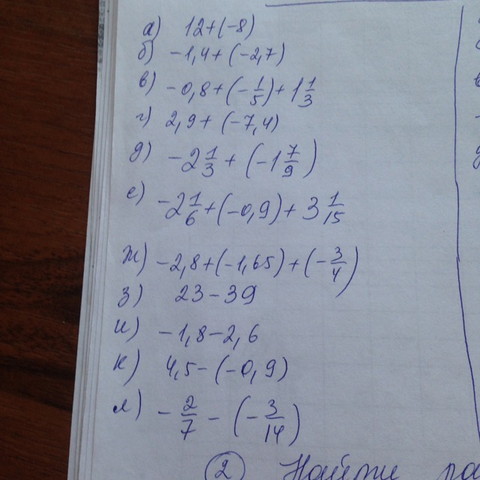 а) 12+(-8)
б) -1,4+(-2,7)
в) -0,8+(-1/5)+1 1/3
г) 2,9+(-7,4)
д) -2 1/3+(-1 7/9)
е) -2 1/6+(-0,9)+3 1/15
ж) -2,8+(-1,65)+(-3/4)
з) 23-39
и) -1,8-2,6
к) 4,5-(-0,9)
л) -2/7-(-3/14)
2 Найти